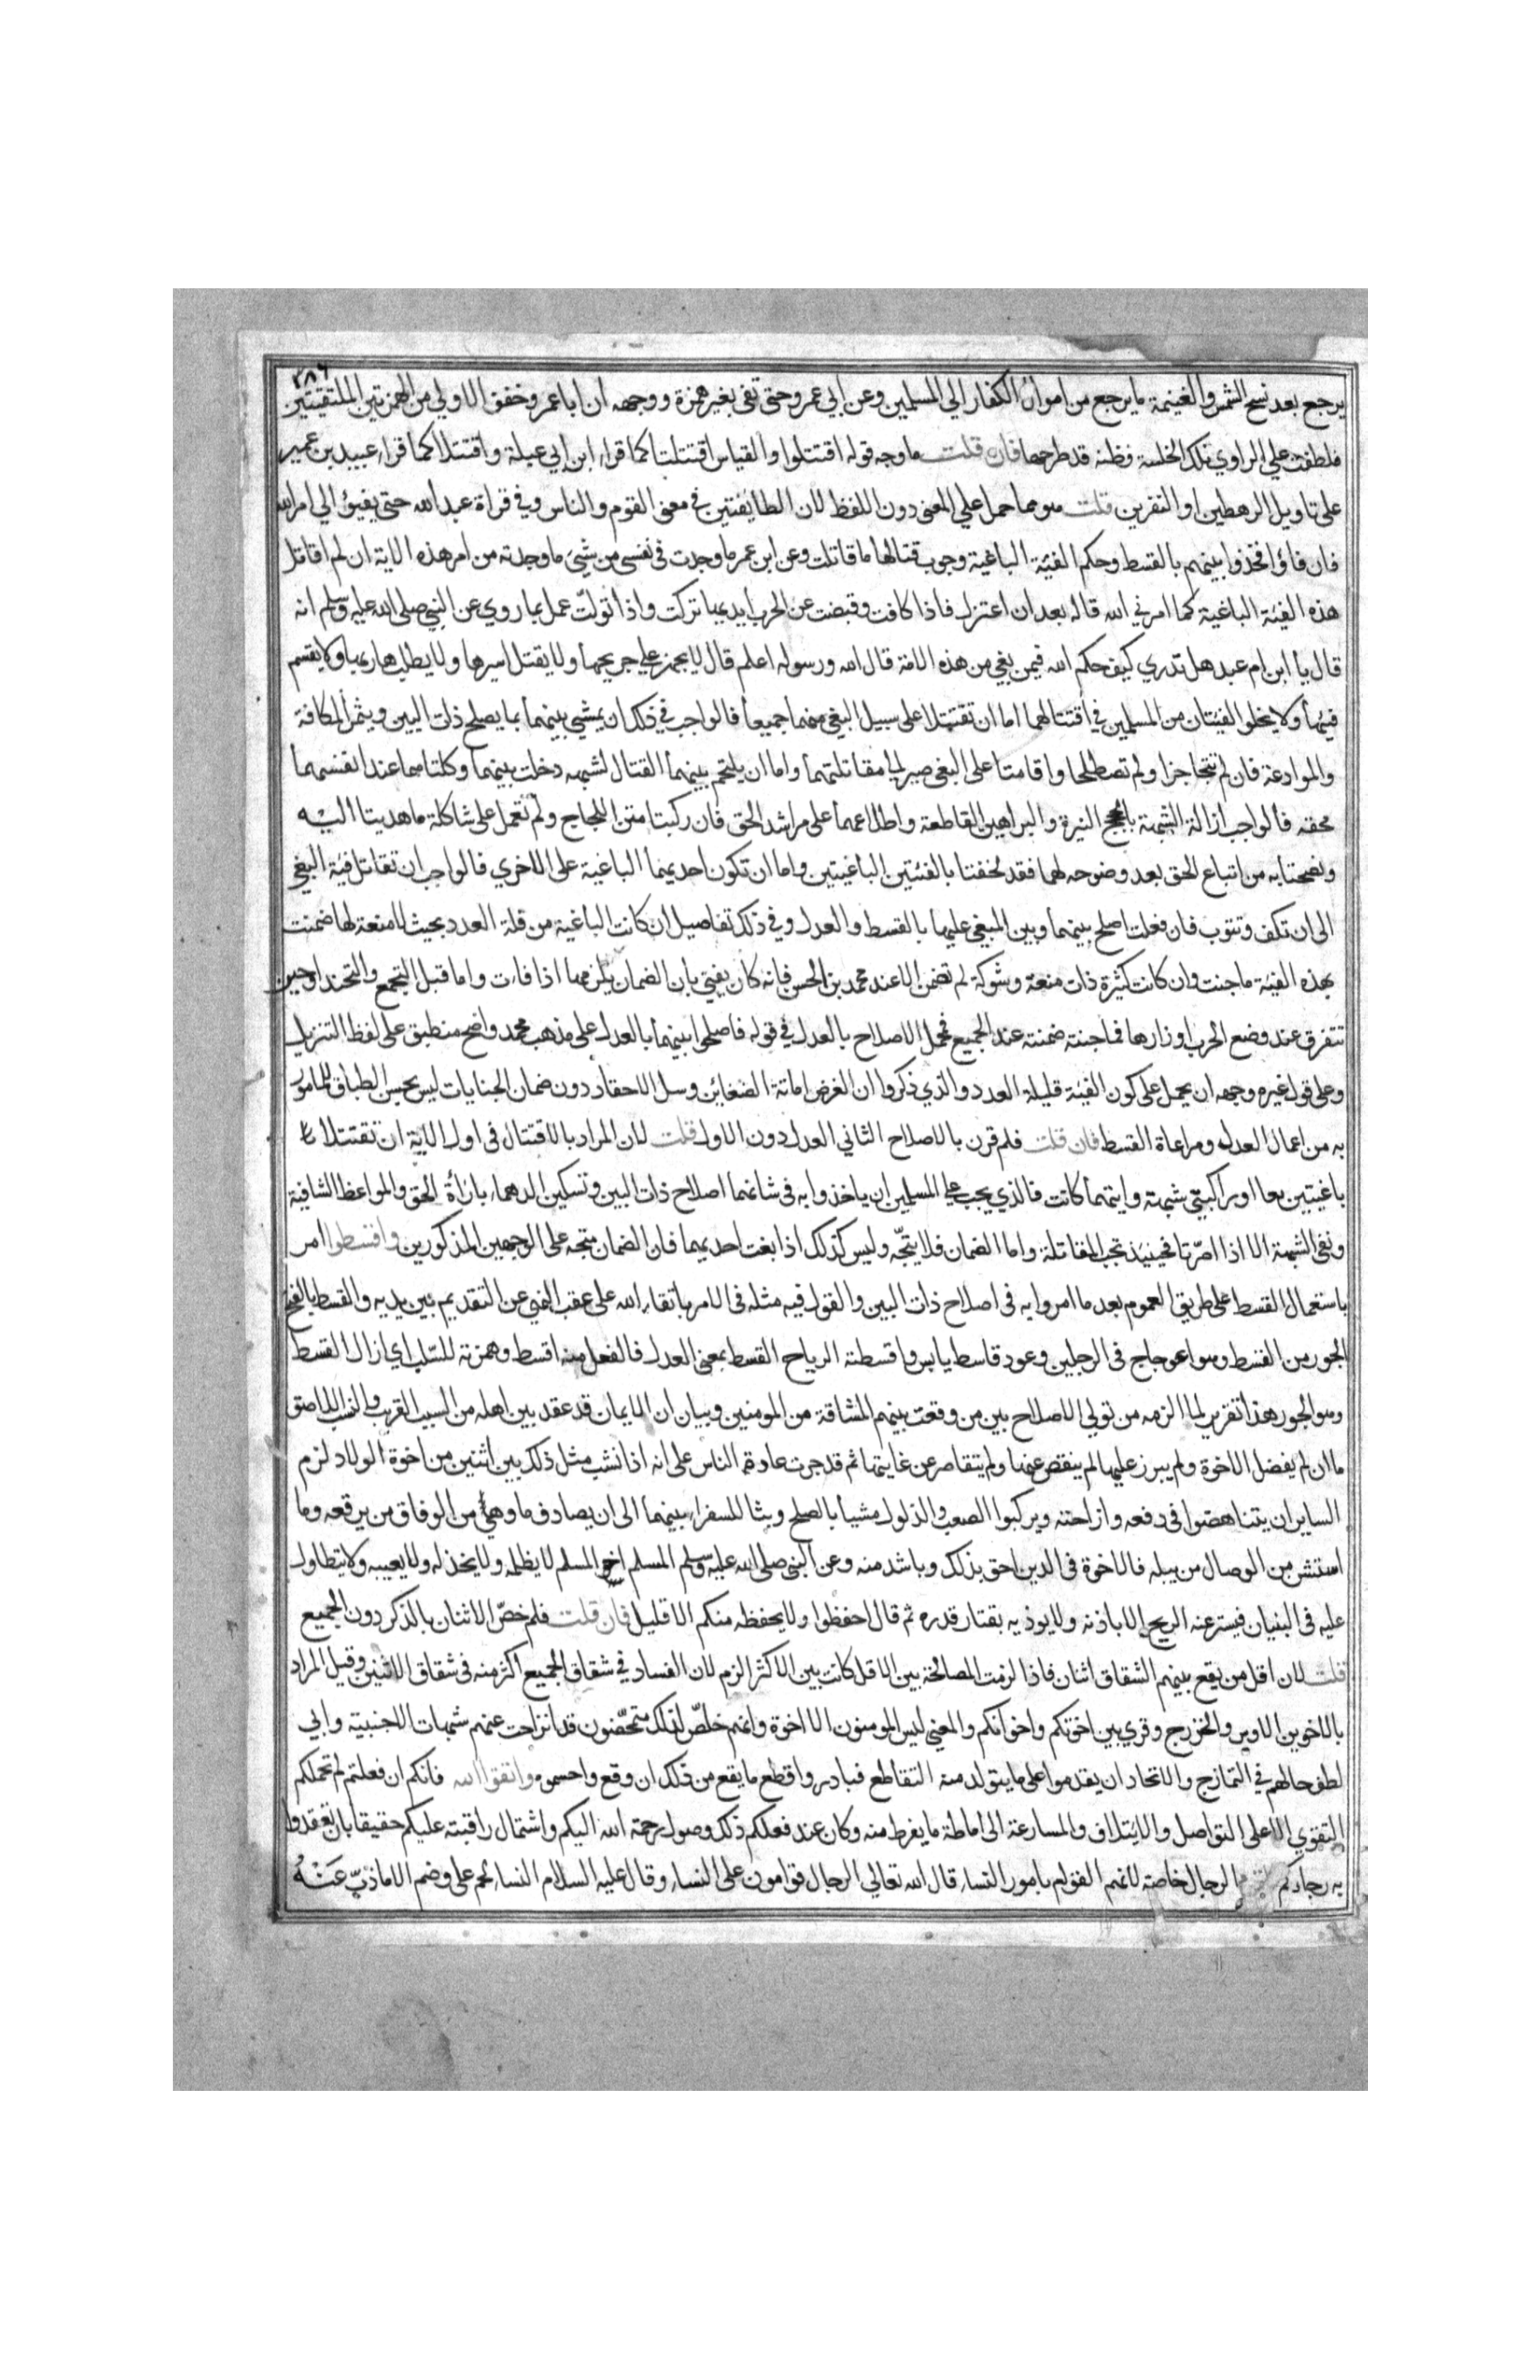 ٣٨٦
يرجع بعد نسخ الشمس والغنيمة ما يرجع من اموال الكفار الي المسلمين وعن ابي عمرو حتي تفي بغير همزة ووجهه ان ابا عمرو خفف الاولي من الهمزتين الملتقيتين
فلطفت علي الراوي تلك الخلسة فظنه قد طرحها فان قلت ما وجه قوله اقتتلوا والقياس اقتتلتا كما قرا ابن ابي عبلة واقتتلا كما قرا عبيد بن عمير
علي تاويل الرهطين او النفرين قلت هو مما حمل علي المعني دون اللفظ لان الطايفتين في معني القوم والناس وفي قراة عبد الله حتي يفيئوا الي امر الله
فان فاؤا فخذوا بينهم بالقسط وحكم الفئة الباغية وجوب قتالها ما قاتلت وعن ابن عمر ما وجدت في نفسي من شيء ما وجدته من امر هذه الاية ان لم اقاتل
هذه الفئة الباغية كما امرني الله قاله بعد ان اعتزل فاذا كافت وقبضت عن الحرب ايديها تركت واذا تولت عمل بما روي عن النبي صلي الله عليه وسلم انه
قال يا ابن ام عبد هل تدري كيف حكم الله فيمن بغي من هذه الامة قال الله ورسوله اعلم قال لا يجهز علي جريحها ولا يقتل اسيرها ولا يطلب هاربها ولا يقسم
فيئها ولا يخلوا الفئتان من المسلمين في اقتتالهما اما ان تقتتلا علي سبيل البغي منهما جميعا فالواجب في ذلك ان يمشي بينهما بما يصلح ذات البين ويثمر المكافة
والموادعة فان لم تتحاجزا ولم تصطلحا واقامتا علي البغي صير الي مقاتلتهما واما ان يلتحم بينهما القتال لشبهه دخلت بينهما وكلتاهما عند انفسهما
محقه فالواجب ازالة الشبهة بالحجج النيرة والبراهين القاطعة واطلاعهما علي مراشد الحق فان ركبتا متن اللجاج ولم تعمل علي شاكلة ما هديتا اليه
ونصحتا به من اتباع الحق بعد وضوحه لهما فقد لحقتا بالفئتين الباغيتين واما ان تكون احديهما الباغية علي الاخري فالواجب ان تقاتل فئة البغي
الي ان تكف وتتوب فان فعلت اصلح بينهما وبين المبغي عليها بالقسط والعدل وفي ذلك تفاصيل ان كانت الباغية من قلة العدد بحيث لا منعة لها ضمنت
بهذه الفيئة ما جنت وان كانت كثيرة ذات منعة وشوكة لم تضمن الا عند محمد بن الحسن فانه كان يفتي بان الضمان يلزمها اذا فاءت واما قبل التجمع والتجند او حين
تتفرق عند وضع الحرب اوزارها فما جنته ضمنته عند الجميع فمحل الاصلاح بالعدل في قوله فاصلحوا بينهما بالعدل علي مذهب محمد واضح منطبق علي لفظ التنزيل
وعلي قول غيره وجهه ان يحمل علي كون الفئة قليلة العدد والذي ذكروا ان الغرض اماتة الضغاين وسل الاحقاد دون ضمان الجنايات ليس بحسن الطباق للمامور
به من اعمال العدل ومراعاة القسط فان قلت فلم قرن بالاصلاح الثاني العدل دون الاول قلت لان المراد بالاقتتال في اول الاية ان تقتتلا
باغيتين معا او راكبتي شبهة وايتهما كانت فالذي يجب علي المسلمين ان ياخذوا به في شانهما اصلاح ذات البين وتسكين الدهما باراة الحق والمواعظ الشافية
ونفي الشبهة الا اذا اصرتا فحينيذ تجب المقاتلة واما الضمان فلا يتجه وليس كذلك اذا بغت احديهما فان الضمان متجه علي الوجهين المذكورين واقسطوا امر
باستعمال القسط علي طريق العموم بعد ما امروا به في اصلاح ذات البين والقول فيه مثله في الامر باتقاء الله علي عقب النهي عن التقديم بين يديه والقسط بالفتح
الجور من القسط وهو اعوجاج في الرجلين وعود قاسط يابس واقسطته الرياح القسط بمعني العدل فالفعل منه اقسط وهمزته للسلب اي ازال القسط
وهو الجور هذا تقرير لما الزمه من تولي الاصلاح بين من وقعت بينهم المشاقة من المومنين وبيان ان الايمان قد عقد بين اهله من السبب القريب والنسب اللاصق
ما ان لم يفضل الاخوة ولم يبرز عليها لم ينقص عنها ولم يتقاصر عن غايتها ثم قد جرت عادة الناس علي انه اذا نشب مثل ذلك بين اثنين من اخوة الولاد لزم
الساير ان يتناهضوا في دفعه وازاحته ويركبوا الصعب والذلول مشيا بالصلح وبثا للسفرا بينهما الي ان يصادف ما وهي من الوفاق من يرقعه وما
استشن من الوصال من يبله فالاخوة في الدين احق بذلك وباشد منه وعن النبي صلي الله عليه وسلم المسلم اخو المسلم لا يظلمه ولا يخذله ولا يعيبه ولا يتطاول
عليه في البنيان فيستر عنه الريح الا باذنه ولا يوذيه بقتار قدره ثم قال احفظوا ولا يحفظه منكم الا قليل فان قلت فلم خص الاثنان بالذكر دون الجميع
قلت لان اقل من يقع بينهم الشقاق اثنان فاذا لزمت المصالحة بين الاقل كانت بين الاكثر الزم لان الفساد في شقاق الجميع اكثر منه في شقاق الاثنين وقيل المراد
بالاخوين الاوس والخزرج وقري بين اخوتكم واخوانكم والمعني ليس المومنون الا اخوة وانهم خلص لذلك متمحضون قد انزاحت عنهم شبهات الاجنبية وابي
لطف حالهم في التمازج والاتحاد ان يقدموا علي ما يتولد منه التقاطع فبادروا قطع ما يقع من ذلك ان وقع واحسموه واتقوا الله فانكم ان فعلتم لم تحملكم
التقوي الا علي التواصل والايتلاف والمسارعة الي اماطة ما يفرط منه وكان عند فعلكم ذلك وصول رحمة الله اليكم واشتمال رافته عليكم حقيقا بان تعقدوا
به رجاكم الرجال خاصة لانهم القوام بامور النسا قال الله تعالي الرجال قوامون علي النسا وقال عليه السلام النسا لحم علي وضم الا ما ذب عنه